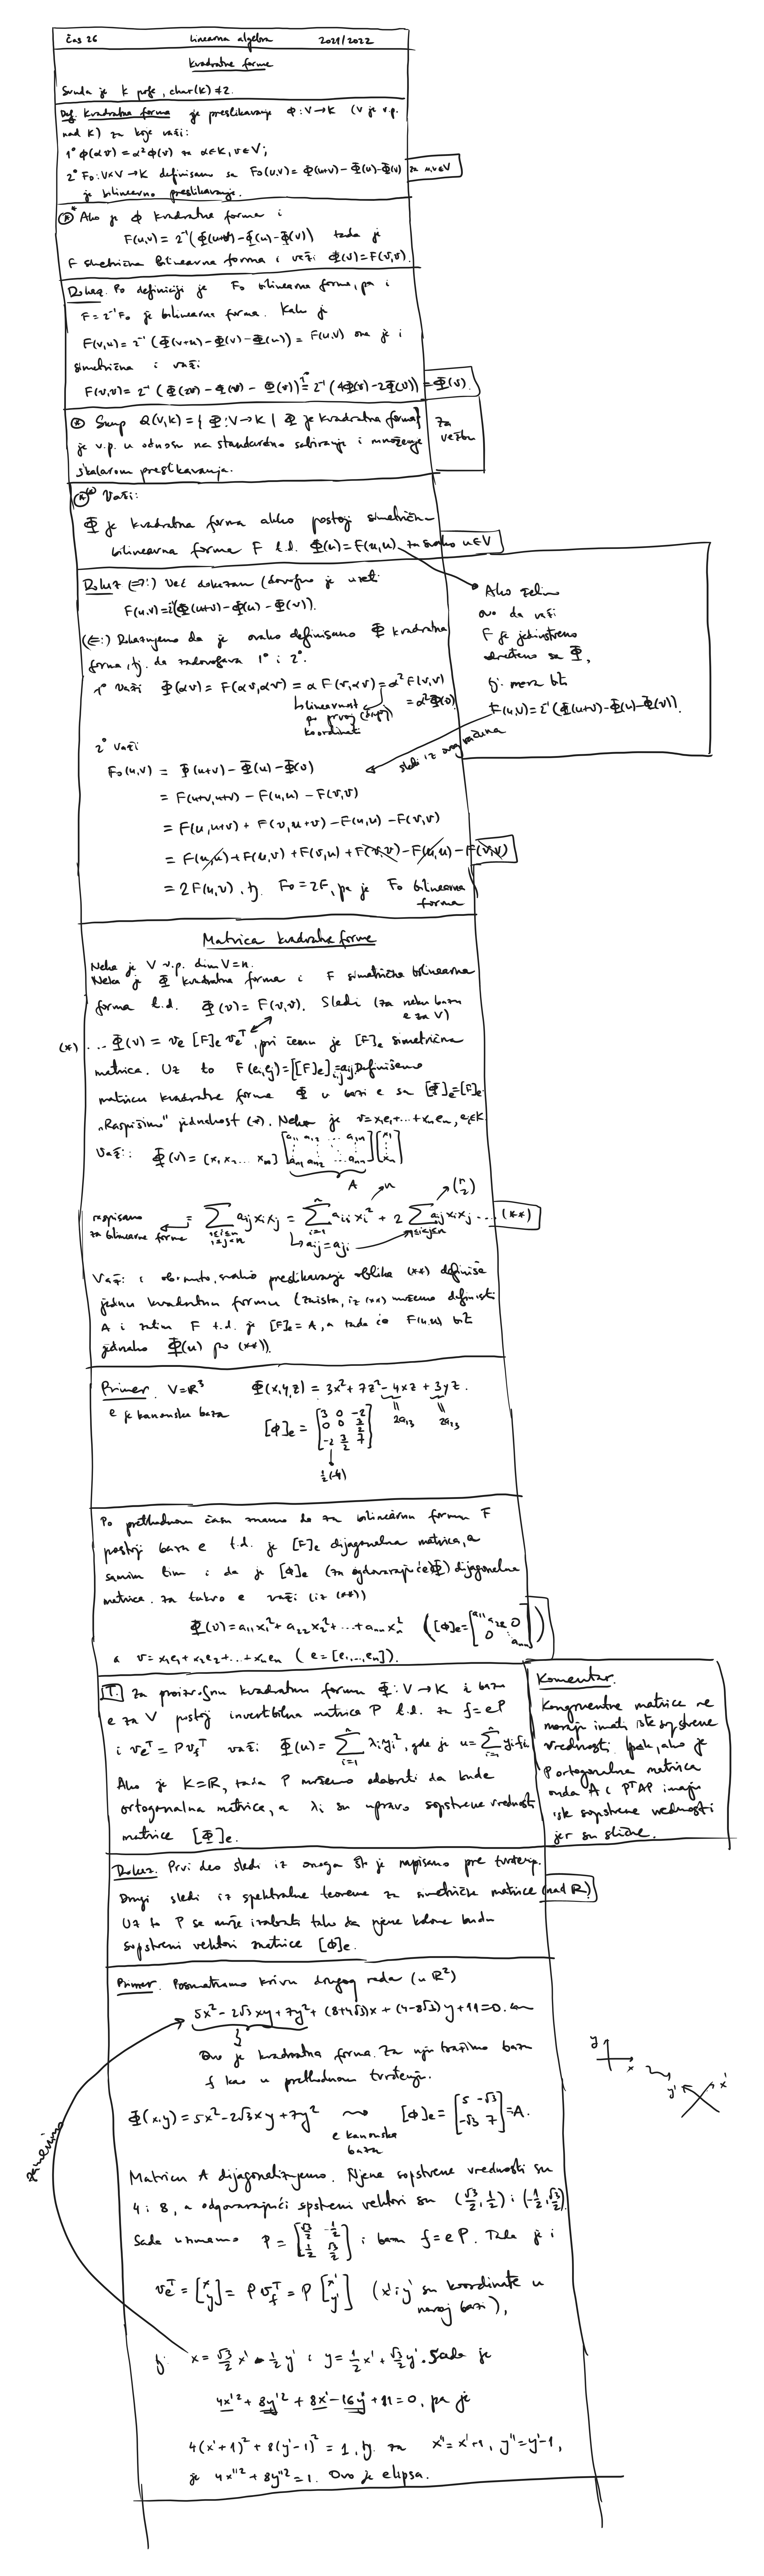 Čas 26 Linearna algebra 2021/2022
Kvadratne forme
Svuda je K polje, char(K)≠2.
Def. Kvadratna forma je preslikavanje Φ: V→K (V je v.p.
nad K) za koje važi:
1° Φ(αv)=α²Φ(v) za α∈K, v∈V;
2° F₀: V×V→K definisano sa F₀(u,v)=Φ(u+v)-Φ(u)-Φ(v) za u,v∈V
je bilinearno preslikavanje.
Ako je Φ kvadratna forma i
F(u,v)=2⁻¹(Φ(u+v)-Φ(u)-Φ(v)) tada je
F simetrična bilinearna forma i važi Φ(v)=F(v,v).
Dokaz. Po definiciji je F₀ bilinearna forma, pa i
F=2⁻¹F₀ je bilinearna forma. Kako je
F(v,u)=2⁻¹(Φ(v+u)-Φ(v)-Φ(u))=F(u,v) ona je i
simetrična i važi
F(v,v)=2⁻¹(Φ(2v)-Φ(v)-Φ(v))=2⁻¹(4Φ(v)-2Φ(v))=Φ(v).
Skup Q(V,K)={Φ:V→K | Φ je kvadratna forma}
je v.p. u odnosu na standardno sabiranje i množenje
skalarom preslikavanja.
Za
vežbu
Važi:
Φ je kvadratna forma akko postoji simetrična
bilinearna forma F t.d. Φ(u)=F(u,u) za svako u∈V
Dokaz (⇒:) Već dokazan (dovoljno je uzeti
F(u,v)=2⁻¹(Φ(u+v)-Φ(u)-Φ(v)).
(⇐:) Dokazujemo da je ovako definisano Φ kvadratna
forma, tj. da zadovoljava 1° i 2°.
1° Važi Φ(αv)=F(αv,αv)=αF(v,αv)=α²F(v,v)
=α²Φ(v).
bilinearnost
po prvoj (drugoj)
koordinati
Ako želimo
ovo da važi
F je jedinstveno
određeno sa Φ,
tj. mora biti
F(u,v)=2⁻¹(Φ(u+v)-Φ(u)-Φ(v)).
sledi iz ovog računa
2° Važi
F₀(u,v) = Φ(u+v)-Φ(u)-Φ(v)
= F(u+v,u+v)-F(u,u)-F(v,v)
= F(u,u+v)+F(v,u+v)-F(u,u)-F(v,v)
= F(u,u)+F(u,v)+F(v,u)+F(v,v)-F(u,u)-F(v,v)
= 2F(u,v), tj. F₀=2F, pa je F₀ bilinearna
forma
Matrica kvadratne forme
Neka je V v.p. dim V=n.
Neka je Φ kvadratna forma i F simetrična bilinearna
forma t.d. Φ(v)=F(v,v). Sledi (za neku bazu
e za V)
(*) ... Φ(v)=vₑ[F]ₑvₑᵀ, pri čemu je [F]ₑ simetrična
matrica. Uz to F(eᵢ,eⱼ)=[[F]ₑ]ᵢⱼ=aᵢⱼ. Definišemo
matricu kvadratne forme Φ u bazi e sa [Φ]ₑ=[F]ₑ.
„Raspišimo" jednakost (*). Neka je v=x₁e₁+...+xₙeₙ, eᵢ∈K
Važi: Φ(v)=[x₁ x₂ ... xₙ] [a₁₁ a₁₂ ... a₁ₙ ⋮ aₙ₁ aₙ₂ ... aₙₙ] [x₁ ⋮ xₙ]
A n (n 2)
raspisano
za bilinearne forme
= Σ 1≤i≤n 1≤j≤n aᵢⱼxᵢxⱼ = Σ i=1 n aᵢᵢxᵢ² + 2 Σ 1≤i<j≤n aᵢⱼxᵢxⱼ ... (**)
aᵢⱼ=aⱼᵢ
Važi i obrnuto, svako preslikavanje oblika (**) definiše
jednu kvadratnu formu (zaista, iz (**) možemo definisati
A i zatim F t.d. je [F]ₑ=A, a tada će F(u,u) biti
jednako Φ(u) po (**)).
Primer. V=ℝ³ Φ(x,y,z)=3x²+7z²-4xz+3yz.
e je kanonska baza
[Φ]ₑ = [3 0 -2 0 0 3/2 -2 3/2 7]
2a₁₃ 2a₂₃
½(-4)
Po prethodnom času znamo da za bilinearnu formu F
postoji baza e t.d. je [F]ₑ dijagonalna matrica, a
samim tim i da je [Φ]ₑ (za odgovarajuće Φ) dijagonalna
matrica. Za takvo e važi (iz (**))
Φ(v)=a₁₁x₁²+a₂₂x₂²+...+aₙₙxₙ² ([Φ]ₑ=[a₁₁ a₂₂ 0 0 ⋱ aₙₙ])
a v=x₁e₁+x₂e₂+...+xₙeₙ (e=[e₁,...,eₙ]).
T. Za proizvoljnu kvadratnu formu Φ: V→K i bazu
e za V postoji invertibilna matrica P t.d. za f=eP
i vₑᵀ=Pv_fᵀ važi: Φ(u)=Σ i=1 n λᵢyᵢ², gde je u=Σ i=1 n yᵢfᵢ.
Ako je K=ℝ, tada P možemo odabrati da bude
ortogonalna matrica, a λᵢ su upravo sopstvene vrednosti
matrice [Φ]ₑ.
Komentar.
Kongruentne matrice ne
moraju imati iste sopstvene
vrednosti. Ipak, ako je
P ortogonalna matrica
onda A i PᵀAP imaju
iste sopstvene vrednosti
jer su slične.
Dokaz. Prvi deo sledi iz onoga što je napisano pre tvrđenja.
Drugi sledi iz spektralne teoreme za simetričke matrice (nad ℝ)
Uz to P se može izabrati tako da njene kolone budu
sopstveni vektori matrice [Φ]ₑ.
Primer. Posmatramo krivu drugog reda (u ℝ²)
5x²-2√3xy+7y²+(8+4√3)x+(4-8√3)y+11=0.
Ovo je kvadratna forma. Za nju tražimo bazu
f kao u prethodnom tvrđenju.
y x y' x'
Φ(x,y)=5x²-2√3xy+7y² [Φ]ₑ=[5 -√3 -√3 7]=A.
e kanonska
baza
Matricu A dijagonalizujemo. Njene sopstvene vrednosti su
4 i 8, a odgovarajući sopstveni vektori su (√3/2,1/2) i (-1/2,√3/2).
Sada uzmemo P=[√3/2 -1/2 1/2 √3/2] i bazu f=eP. Tada je i
vₑᵀ=[x y]=Pv_fᵀ=P[x' y'] (x' i y' su koordinate u
novoj bazi),
zamenimo
tj. x=√3/2x'-½y' i y=½x'+√3/2y'. Sada je
4x'²+8y'²+8x'-16y'+11=0, pa je
4(x'+1)²+8(y'-1)²=1, tj. za x''=x'+1, y''=y'-1,
je 4x''²+8y''²=1. Ovo je elipsa.